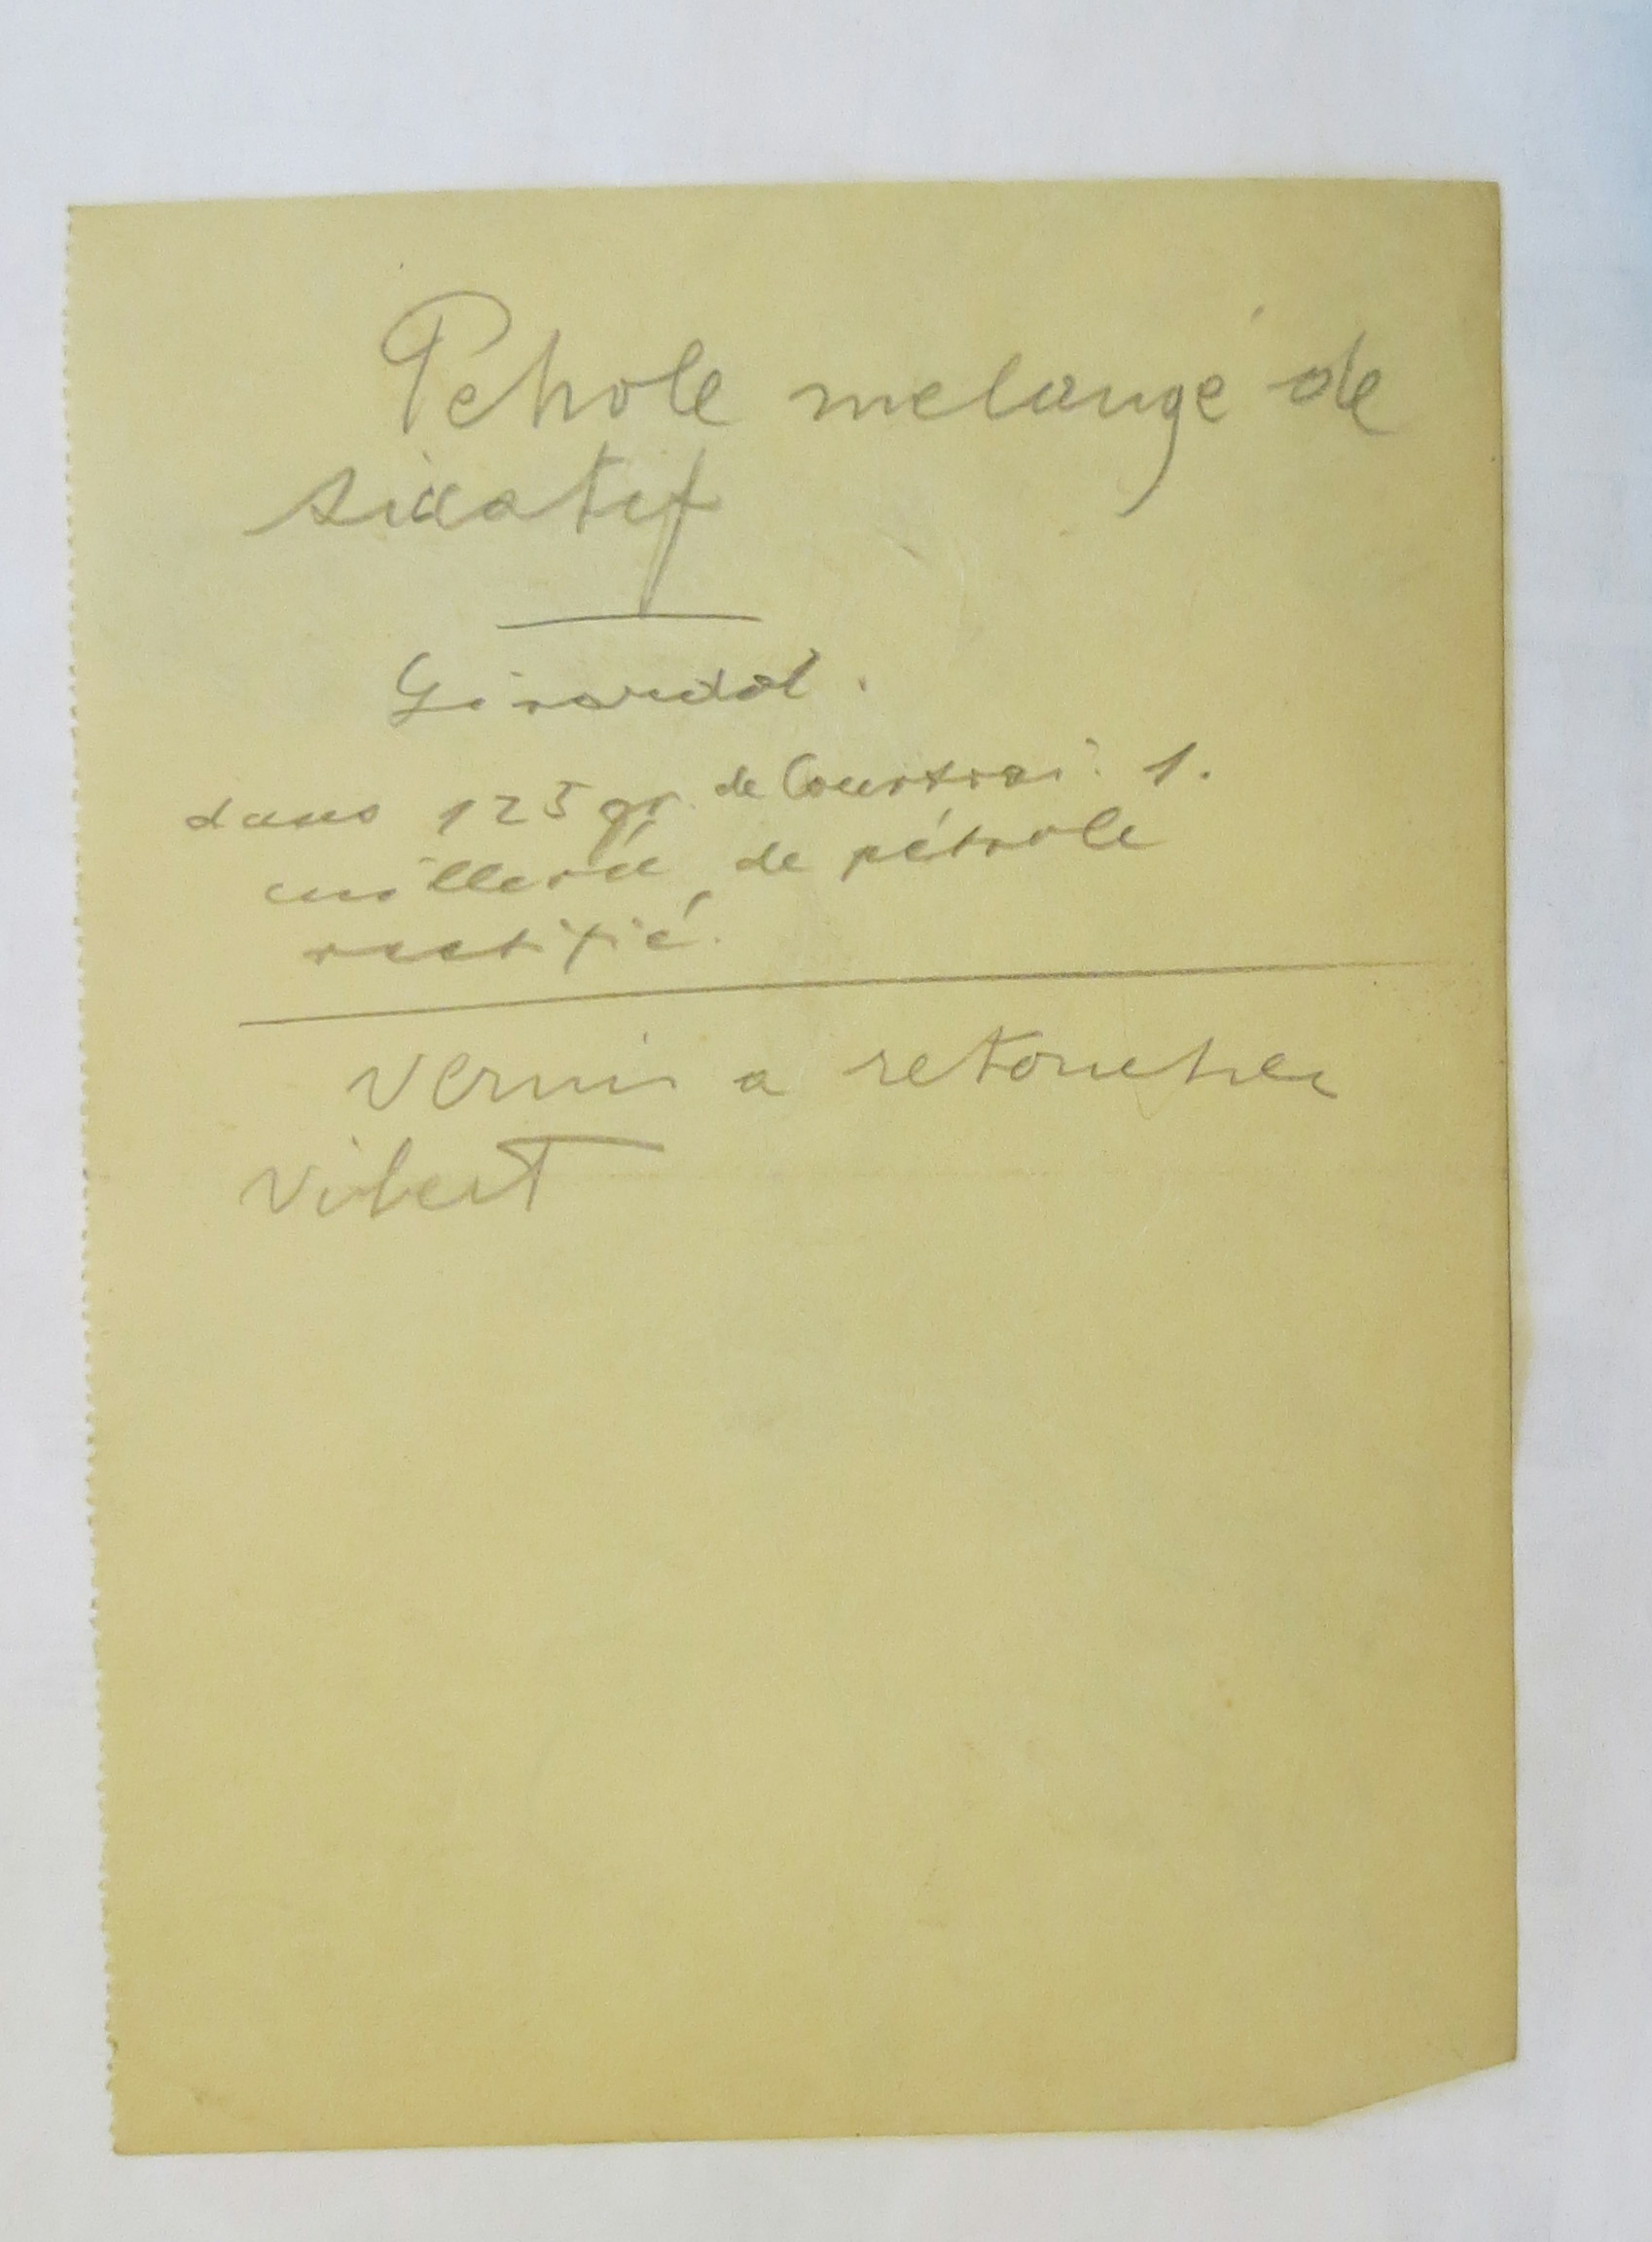 Petrole melangé de
sicatif
Girardot.
dans 125 gr. de Courtrai. 1.
cuillerée de pétrole
rectifié.
Vernis a retoucher
Vibert